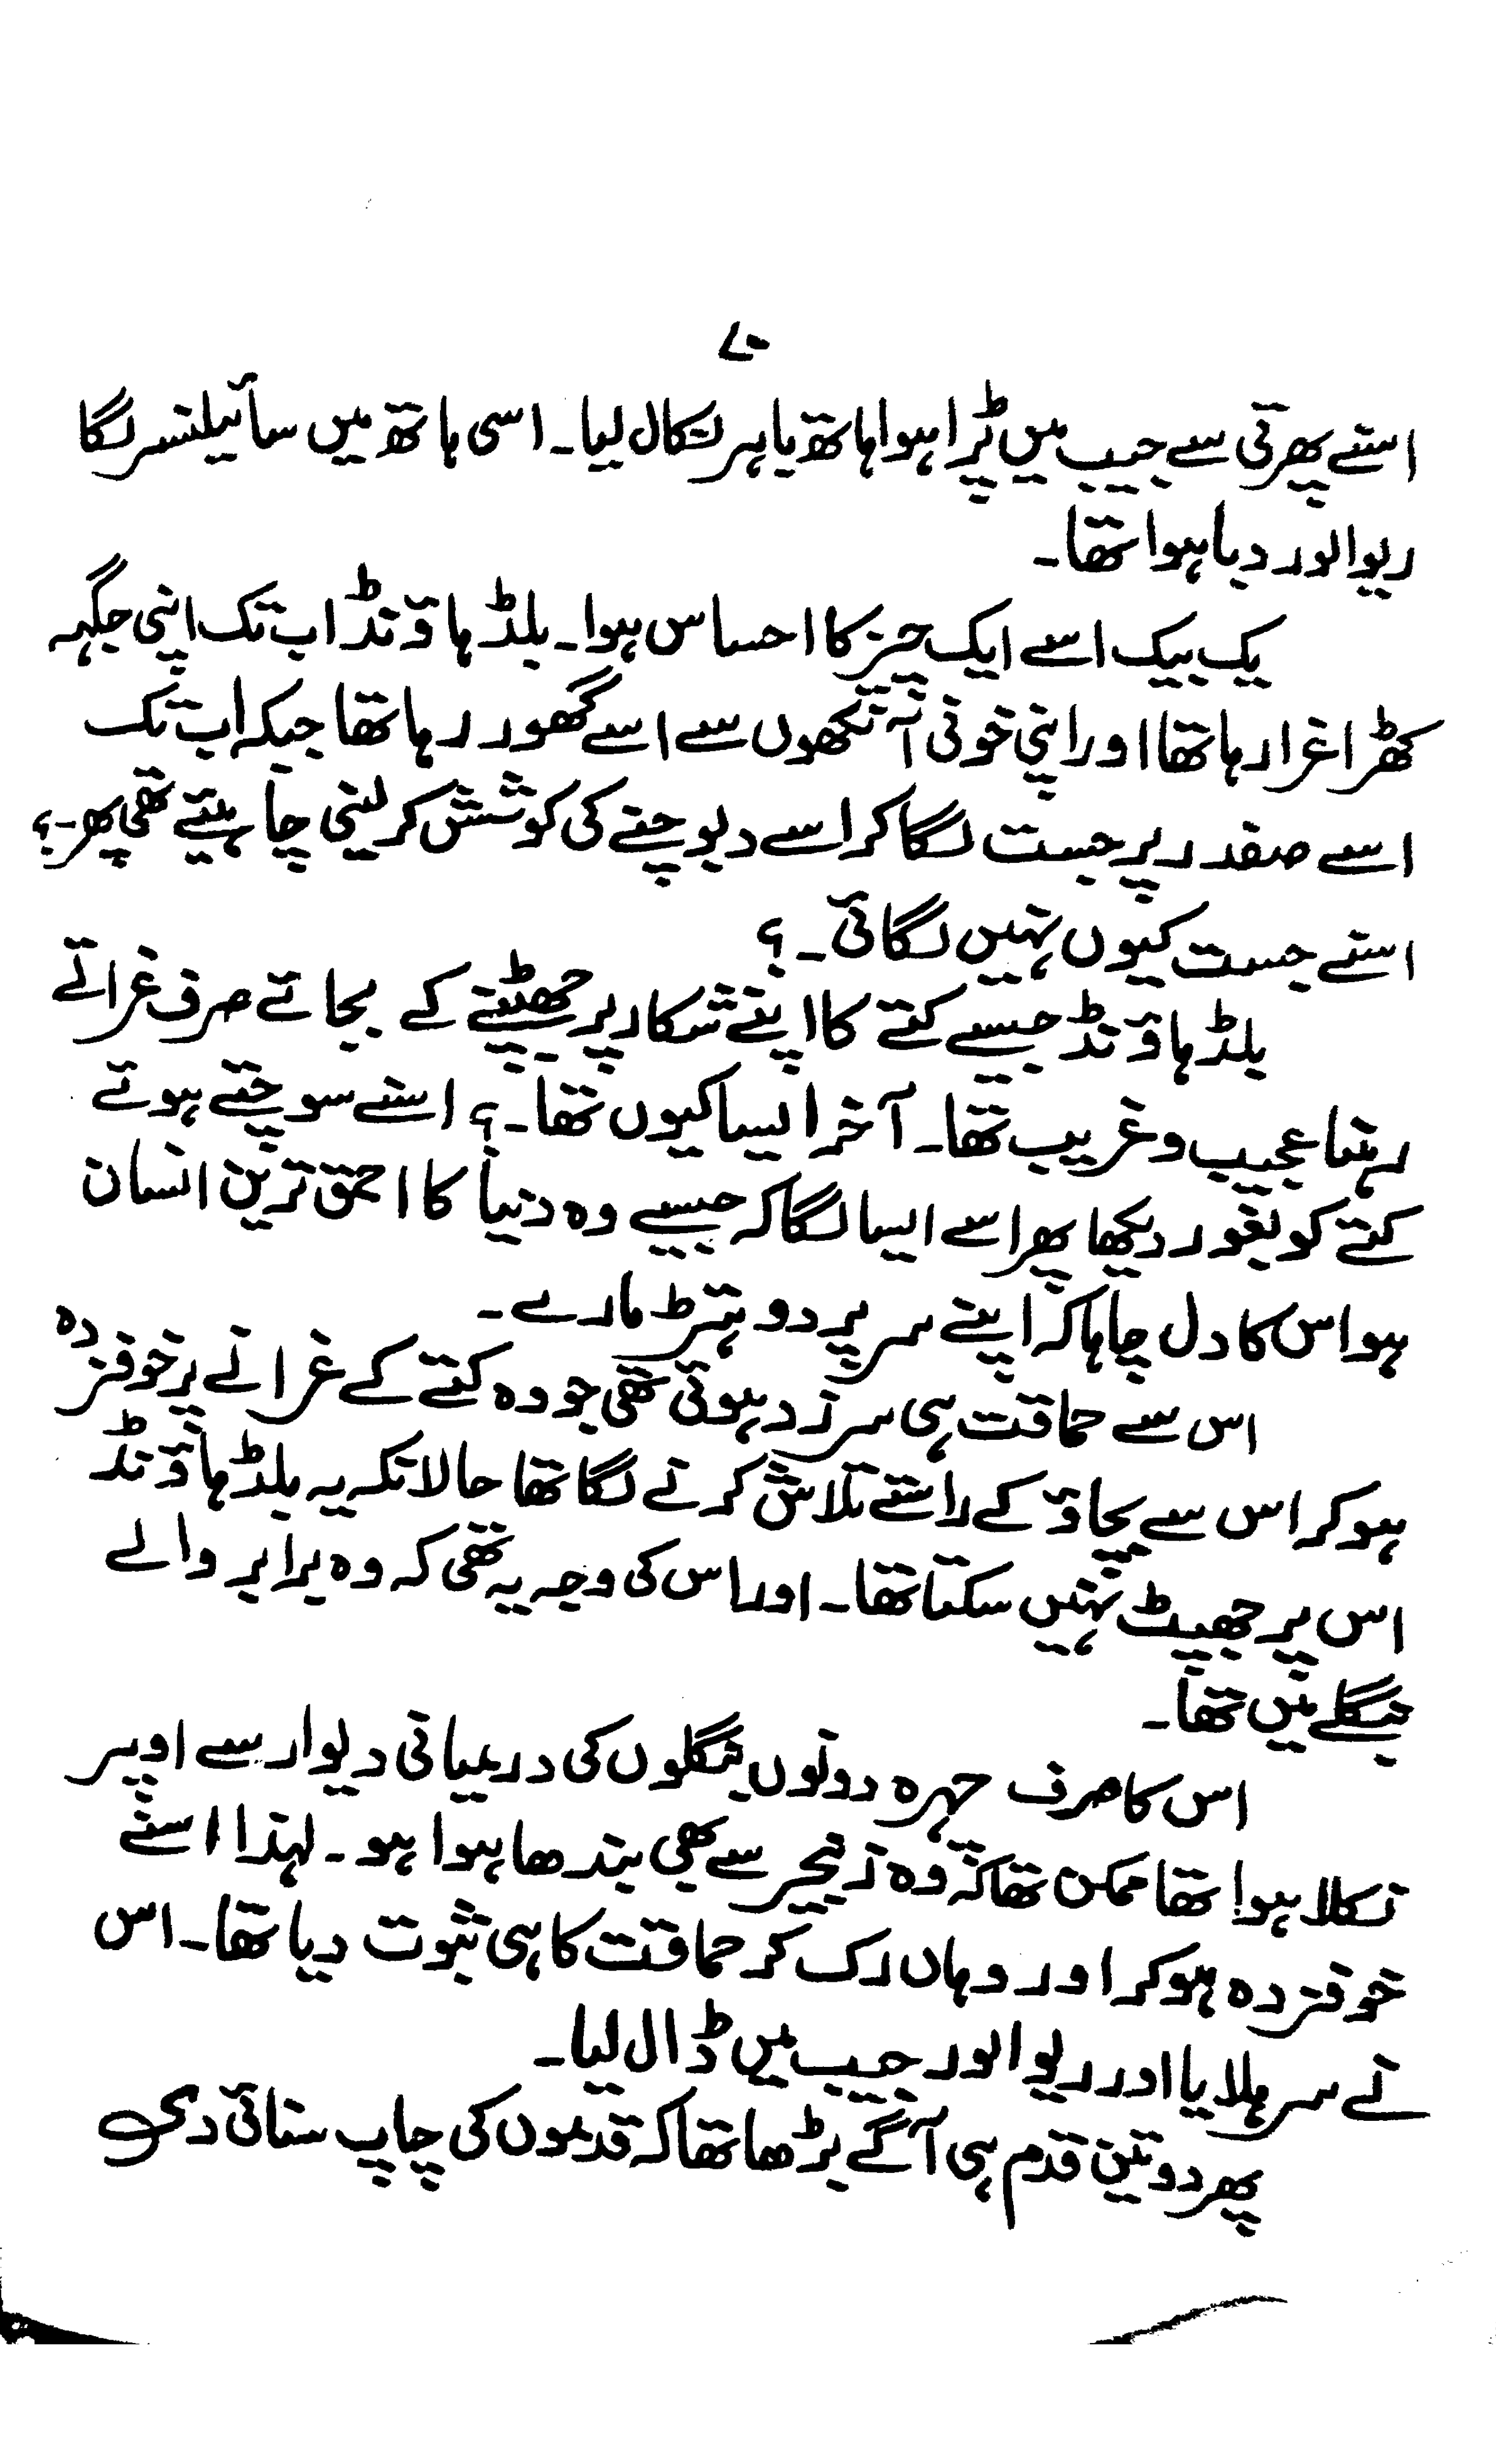 ۷۰
اسنے پھرتی سے جیب میں پڑا ہوا ہاتھ باہر نکال لیا۔ اسی ہاتھ میں سائیلنسر لگا
ریوالور دبا ہوا تھا۔
یک بیک اسے ایک چیز کا احساس ہوا۔ بلڈ ہاؤنڈ اب تک اپنی جگہہ
کھڑا غرا رہا تھا اور اپنی خونی آنکھوں سے اسے گھور رہا تھا جبکہ اب تک
اسے صفدر پر جست لگا کر اسے دبوچنے کی کوشش کر لینی چاہیئے تھی پھر۔؟
اسنے جست کیوں نہیں لگائی۔؟
بلڈ ہاؤنڈ جیسے کتے کا اپنے شکار پر جھپٹنے کے بجائے صرف غراتے
رہنا عجیب و غریب تھا۔ آخر ایسا کیوں تھا۔؟ اسنے سوچتے ہوئے
کتے کو بغور دیکھا پھر اسے ایسا لگا کہ جیسے وہ دنیا کا احمق ترین انسان
ہو اس کا دل چاہا کہ اپنے سر پر دو ہتڑ مارے۔
اس سے حماقت ہی سرزد ہوئی تھی جو وہ کتے کے غرانے پر خوفزدہ
ہو کر اس سے بچاؤ کے راستے تلاش کرنے لگا تھا حالانکہ یہ بلڈ ہاؤنڈ
اس پر جھپٹ نہیں سکتا تھا۔ اور اس کی وجہ یہ تھی کہ وہ برابر والے
بنگلے میں تھا۔
اس کا صرف چہرہ دونوں بنگلوں کی درمیانی دیوار سے اوپر
نکلا ہوا تھا ممکن تھا کہ وہ زنجیر سے بھی بندھا ہوا ہو۔ لہذا اسنے
خوفزدہ ہو کر اور وہاں رک کر حماقت کا ہی ثبوت دیا تھا۔ اس
نے سر ہلایا اور ریوالور جیب میں ڈال لیا۔
پھر دو تین قدم ہی آگے بڑھا تھا کہ قدموں کی چاپ سنائی دی